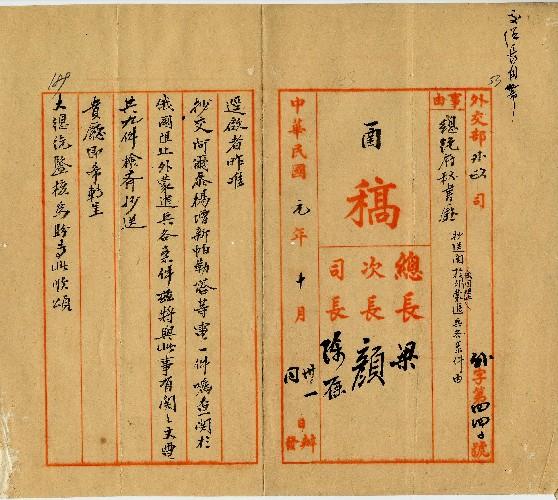 53
外交部 外政 司
事由
總統府秘書廳
抄送關於外蒙退兵各案件由
外字第四四 號
函
稿
總長 梁
次長 顏
司長 陳
中華民國 元年 十月 卅一 日
同 日
辦
發
逕啟者昨准
抄交阿爾泰楊增新帕勒塔等電一件囑查關於
俄國阻止外蒙退兵各案件茲將與此事有關之文電
共九件檢齊抄送
貴廳即希轉呈
大總統鑒核為盼專此順頌